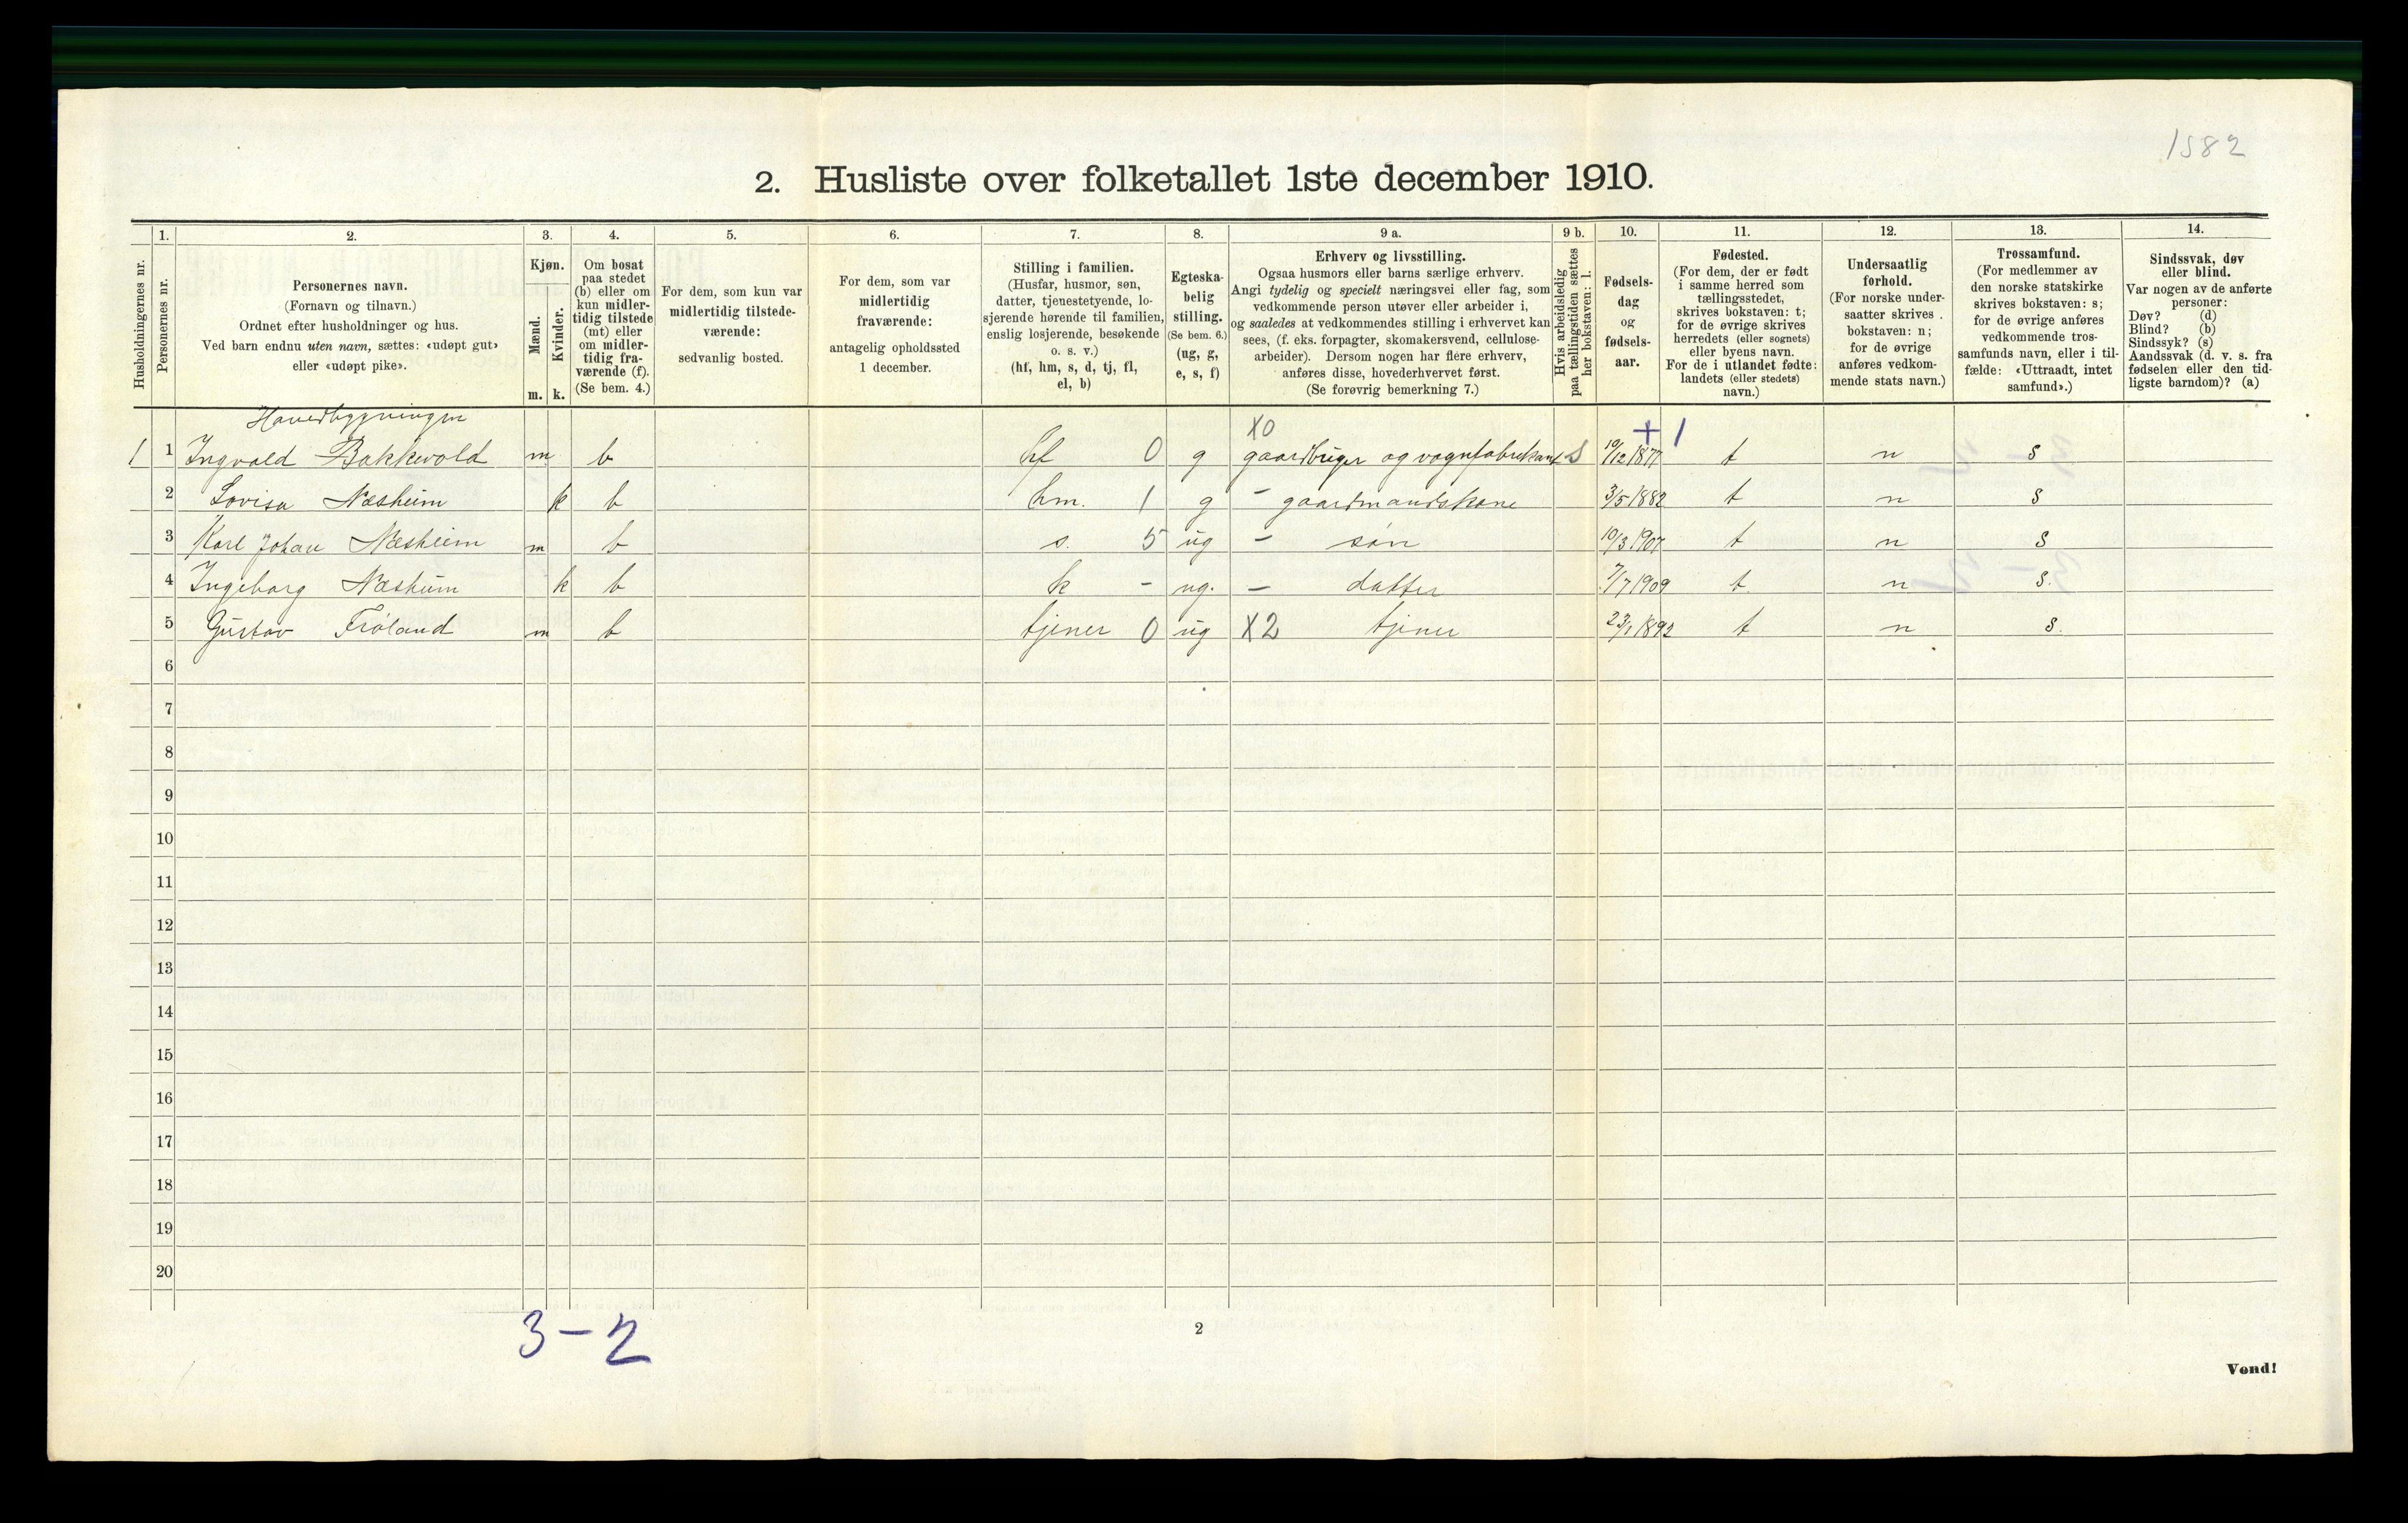 1582
2. Husliste over folketallet 1ste december 1910.
Husholdningernes nr.
1.
Personernes nr.
2.
Personernes navn.
(Fornavn og tilnavn.)
Ordnet efter husholdninger og hus.
Ved barn endnu uten navn, sættes: «udøpt gut»
eller «udøpt pike».
3.
Kjøn.
Mænd.
Kvinder.
m. k.
4.
Om bosat
paa stedet
(b) eller om
kun midler-
tidig tilstede
(mt) eller
om midler-
tidig fra-
værende (f).
(Se bem. 4.)
5.
For dem, som kun var
midlertidig tilstede-
værende:
sedvanlig bosted.
6.
For dem, som var
midlertidig
fraværende:
antagelig opholdssted
1 december.
7.
Stilling i familien.
(Husfar, husmor, søn,
datter, tjenestetyende, lo-
sjerende hørende til familien,
enslig losjerende, besøkende
o. s. v.)
(hf, hm, s, d, tj, fl,
el, b)
8.
Egteska-
belig
stilling.
(Se bem. 6.)
(ug, g,
e, s, f)
9 a.
Erhverv og livsstilling.
Ogsaa husmors eller barns særlige erhverv.
Angi tydelig og specielt næringsvei eller fag, som
vedkommende person utøver eller arbeider i,
og saaledes at vedkommendes stilling i erhvervet kan
sees, (f. eks. forpagter, skomakersvend, cellulose-
arbeider). Dersom nogen har flere erhverv,
anføres disse, hovederhvervet først.
(Se forøvrig bemerkning 7.)
9 b.
Hvis arbeidsledig
paa tællingstiden sættes
her bokstaven: l.
10.
Fødsels-
dag
og
fødsels-
aar.
11.
Fødested.
(For dem, der er født
i samme herred som
tællingsstedet,
skrives bokstaven: t;
for de øvrige skrives
herredets (eller sognets)
eller byens navn.
For de i utlandet fødte:
landets (eller stedets)
navn.)
12.
Undersaatlig
forhold.
(For norske under-
saatter skrives
bokstaven: n;
for de øvrige
anføres vedkom-
mende stats navn.)
13.
Trossamfund.
(For medlemmer av
den norske statskirke
skrives bokstaven: s;
for de øvrige anføres
vedkommende tros-
samfunds navn, eller i til-
fælde: «Uttraadt, intet
samfund».)
14.
Sindssvak, døv
eller blind.
Var nogen av de anførte
personer:
Døv? (d)
Blind? (b)
Sindssyk? (s)
Aandssvak (d. v. s. fra
fødselen eller den tid-
ligste barndom)? (a)
Hovedbygningen
X0 + 1
1 1 Ingvald Bakkevold m b hf 0 g gaardbruger og vognfabrikant S 10/12 1877 t n s
2 Lovisa Næsheim k b hm. 1 g - gaardmandskone 3/5 1882 t n s
3 Karl Johan Næsheim m b s. 5 ug - søn 10/3 1907 t n s
4 Ingeborg Næsheim k b k - ug. - datter 7/7 1909 t n s.
5 Gustav Frøland m b tjener 0 ug X2 tjener 23/1 1892 t n s.
6
7
8
9
10
11
12
13
14
15
16
17
18
19
20
3-2
2
Vend!